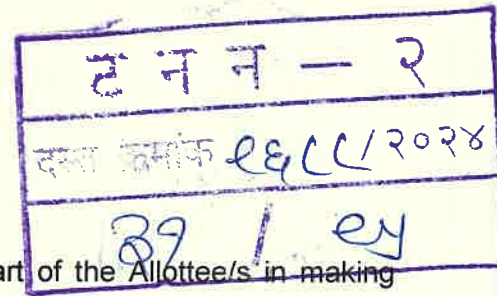 ट न न — २
दस्त क्रमांक १६८८/२०२४
३१ / ९५
art of the Allottee/s in making